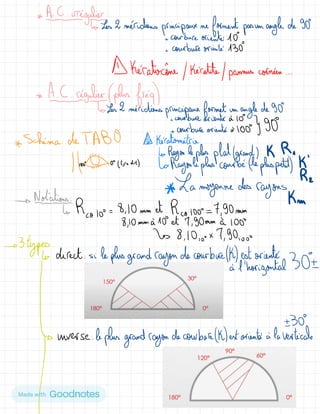 * A C irrégulier
↳ Les 2 méridiens principaux ne forment pas un angle de 90°
• courbure orientée 10°
• courbure orienté 130°
⚠ Kératocône / Kératite / pannus cornéen ...
* A C régulier (plus fréq)
↳ Les 2 méridiens principaux forment un angle de 90°
• courbure orientée à 10°
• courbure orienté à 100° } 90°
* Schéma de TABO
Kératométrie
180° 0° (Livre)
↳ Rayon le plus plat (grand) K R₁
↳ Rayon le plus courbe (le plus petit) K' R₂
* La moyenne des rayons Km
→ Notations
↳ Rcδ 10° = 8,10 mm et Rcδ 100° = 7,90 mm
8,10 mm à 10° et 7,90 mm à 100°
↳ 8,10 10° × 7,90 100°
→ 3 types
↳ direct : si le plus grand rayon de courbure (K) est orienté à l'horizontal 30° ±
150° 30°
180° 0°
±30°
↳ inverse : le plus grand rayon de courbure (K) est orienté à la verticale
90°
120° 60°
180° 0°
Made with Goodnotes